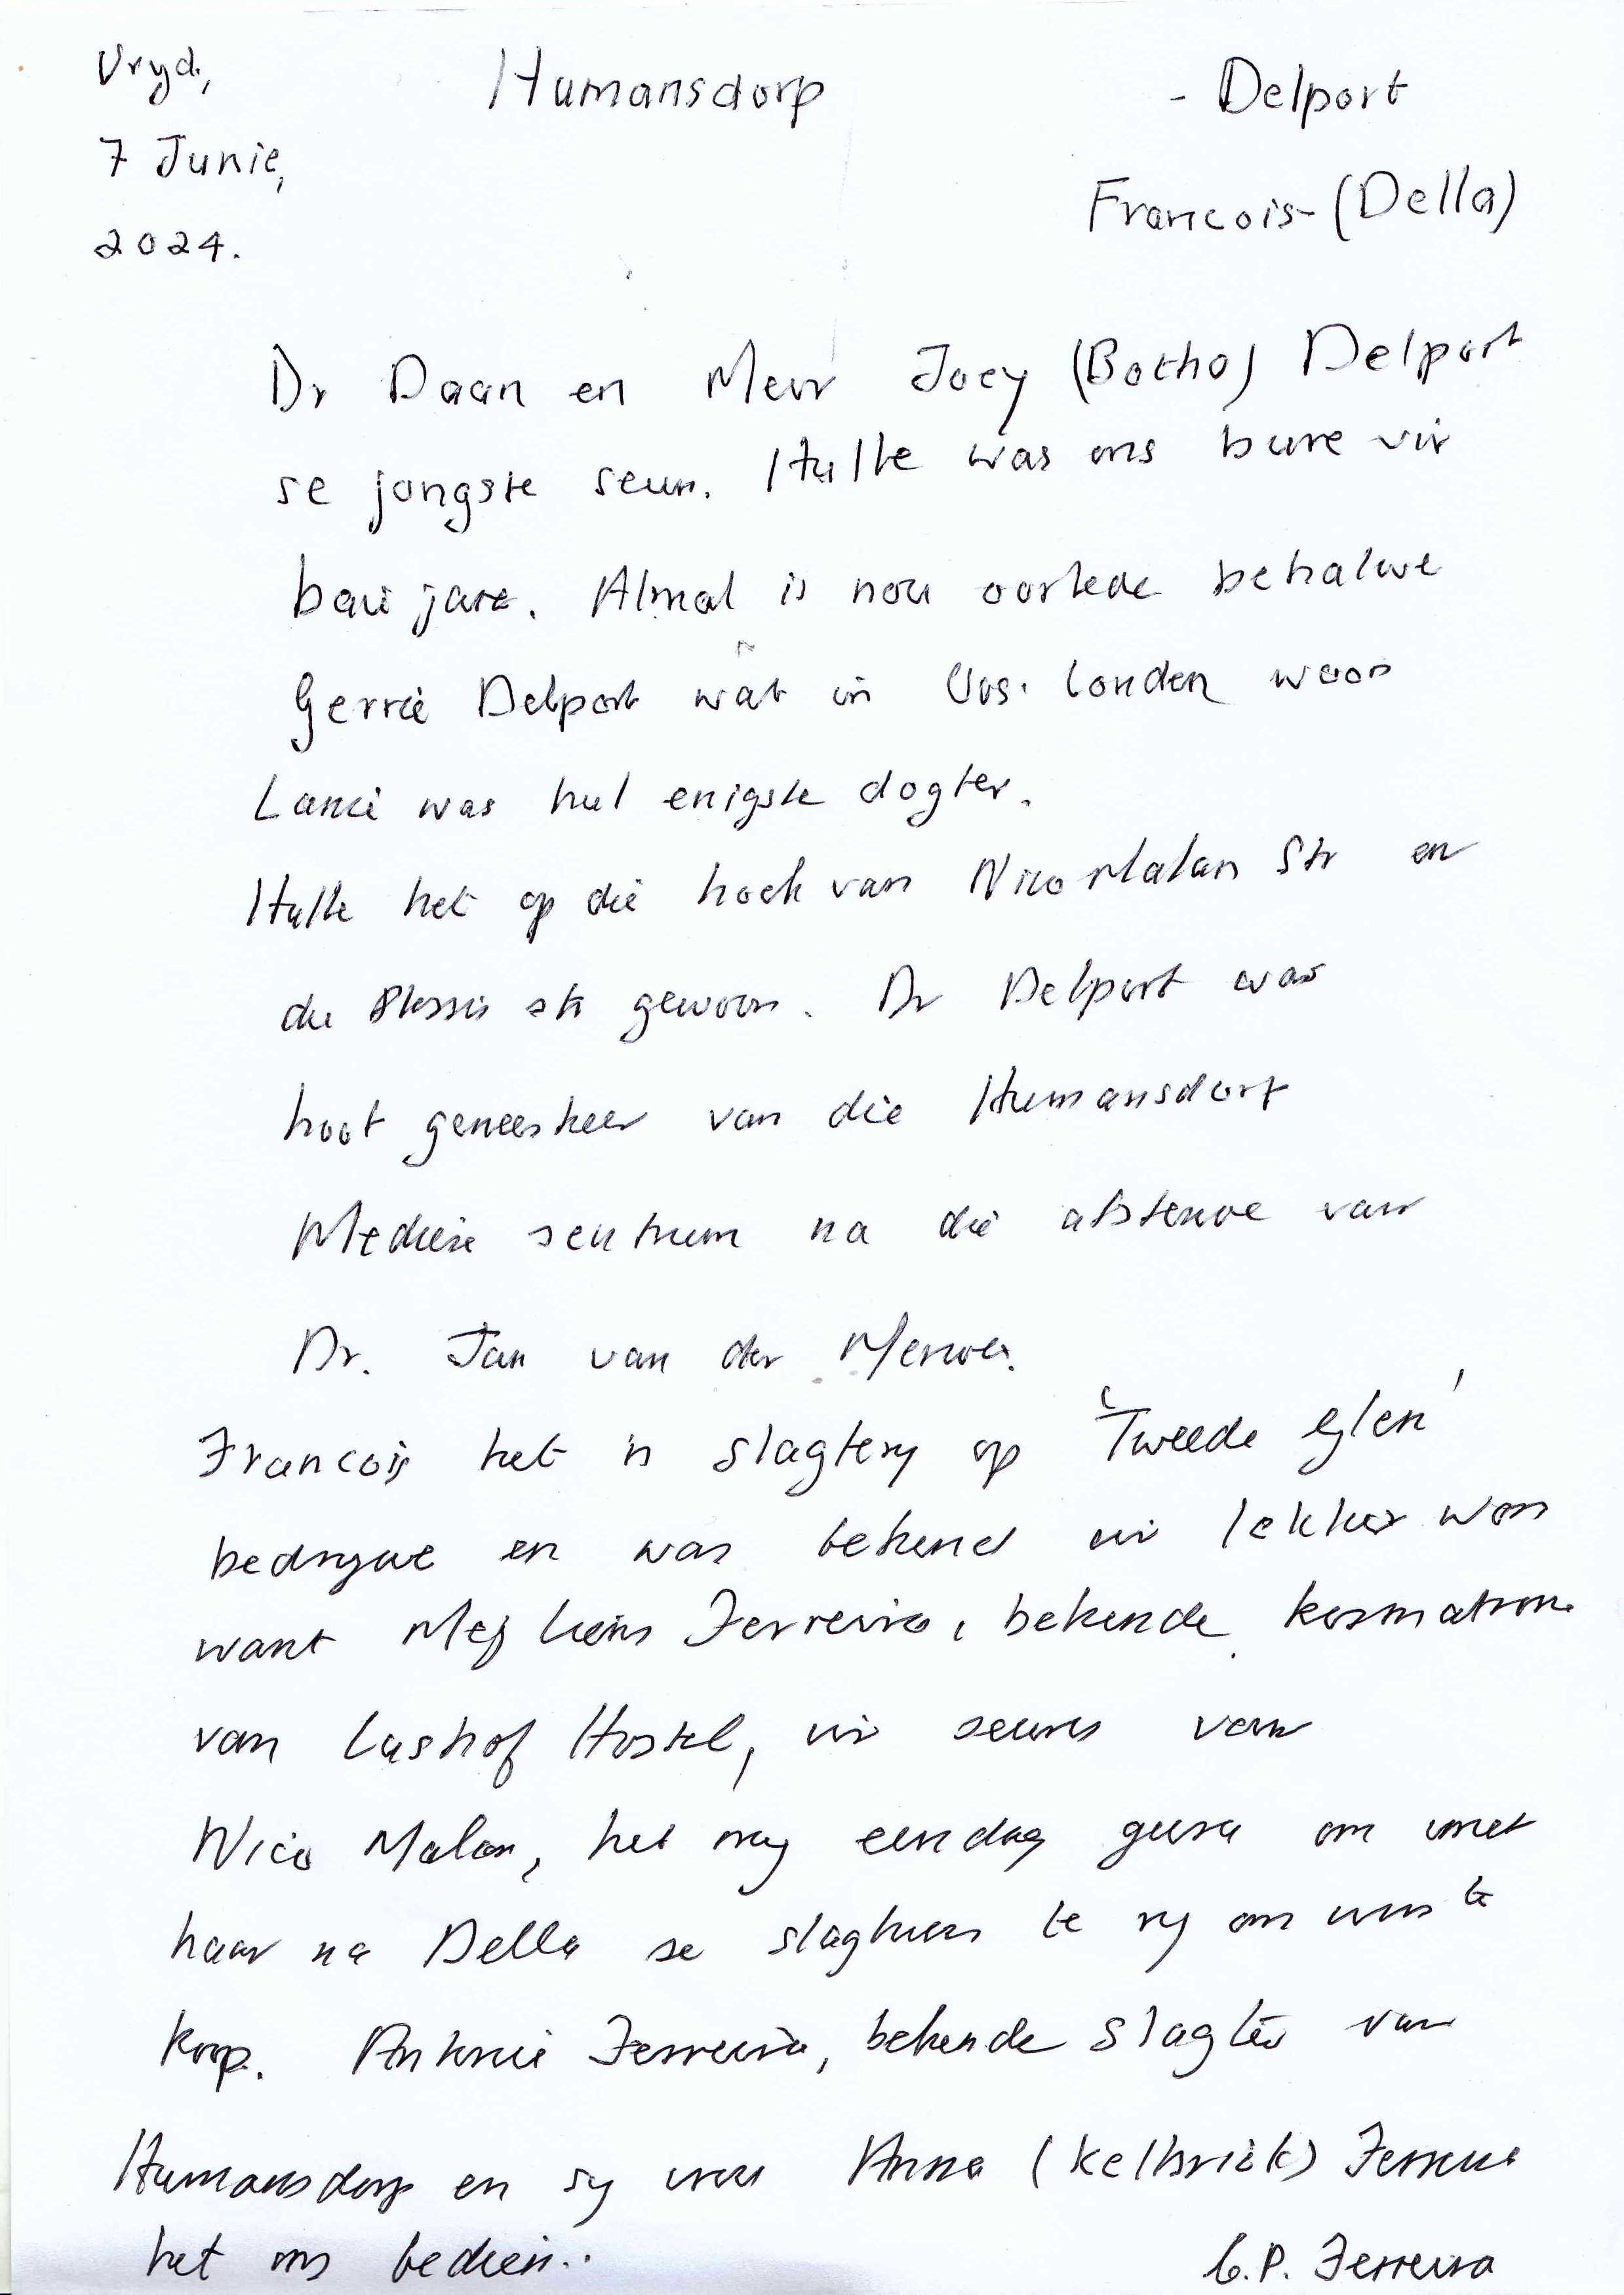 Vryd., Humansdorp - Delport
7 Junie, Francois - (Della)
2024.
Dr Daan en Mevr Joey (Botha) Delport
se jongste seun. Hulle was ons bure vir
baie jare. Almal is nou oorlede behalwe
Gerrie Delport wat in Oos. Londen woon
was hul enigste dogter.
Hulle het op die hoek van Nico Malan Str en
du Plessis str gewoon. Dr Delport was
hoof geneesheer van die Humansdorp
Mediese sentrum na die afsterwe van
Dr. Jan van der Merwe.
Francois het 'n slagtery op 'Tweede Glen'
bedrywe en was bekend vir lekker wors
want Mej Ferreira, bekende kosmatrone
van Lashof Hostel, vir seuns van
Nico Malan, het my eendag gevra om met
haar na Della se slaghuis te ry om wors te
koop. Antonie Ferreira, bekende slagter van
Humansdorp en sy vrou Anna (Kelbrick) Ferreira
het ons bedien..
C.P. Ferreira